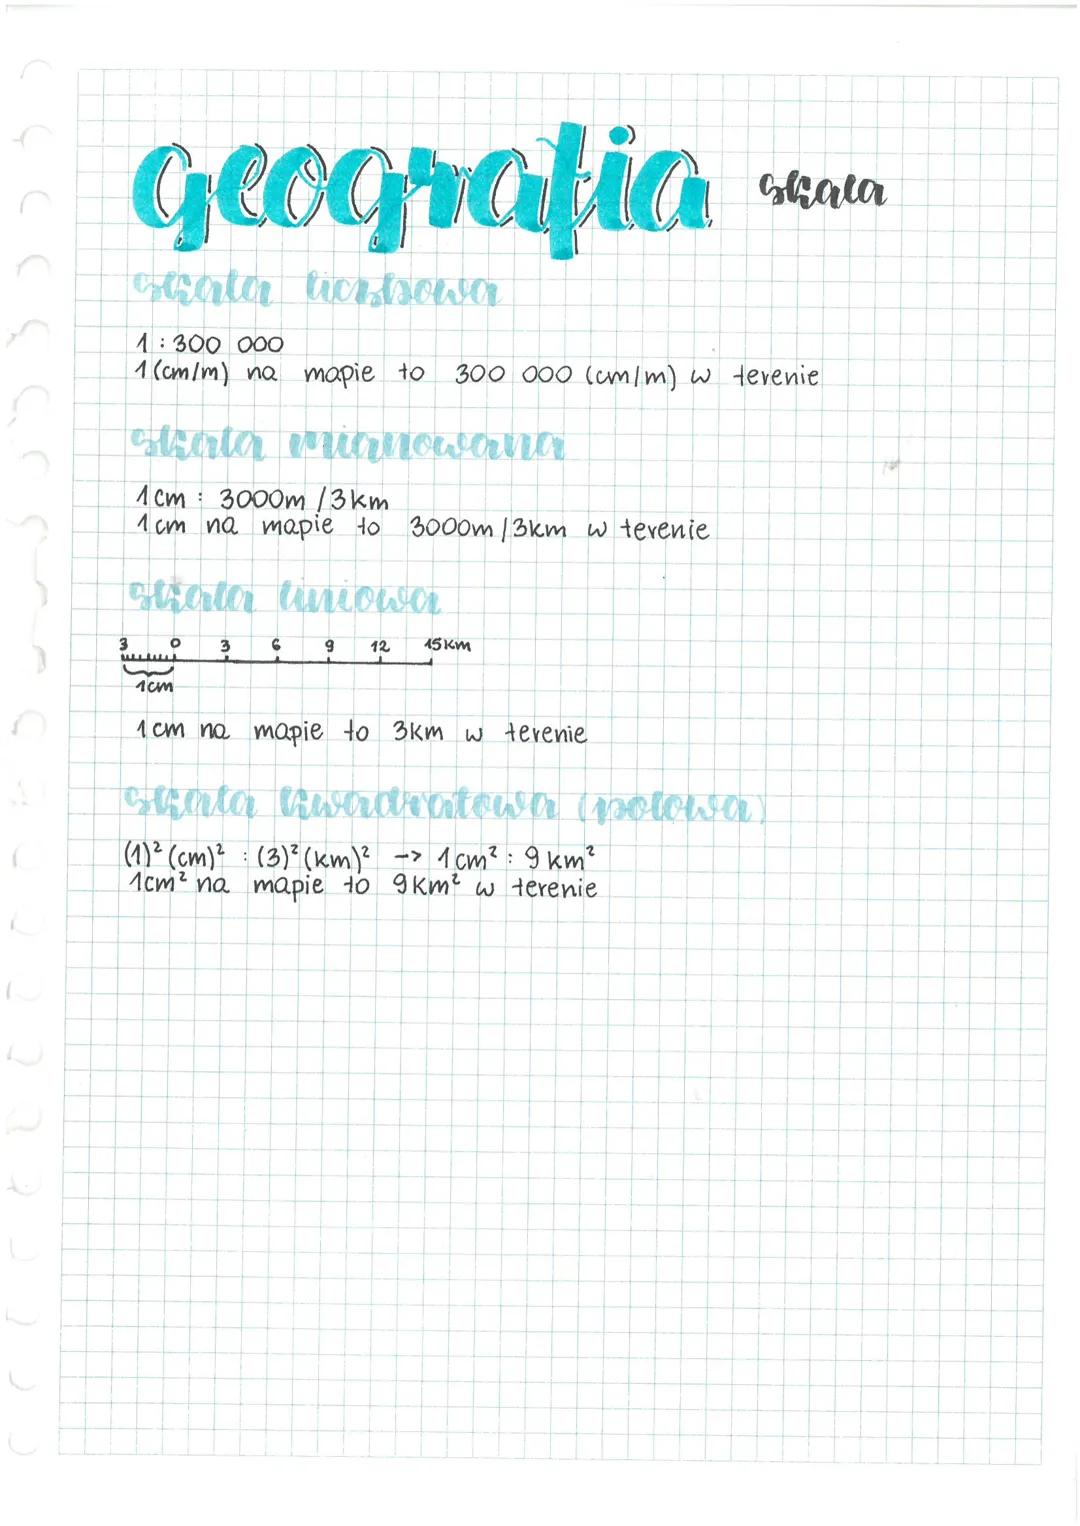 geografia skala
skala liczbowa
1 : 300 000
1 (cm/m) na mapie to 300 000 (cm/m) w terenie
skala mianowana
1cm : 3000m /3km
1cm na mapie to 3000m/3km w terenie
skala liniowa
3 0 3 6 9 12 15km
1cm
1cm na mapie to 3km w terenie
skala kwadratowa (polowa)
(1)² (cm)² : (3)² (km)² -> 1cm² : 9 km²
1cm² na mapie to 9km² w terenie